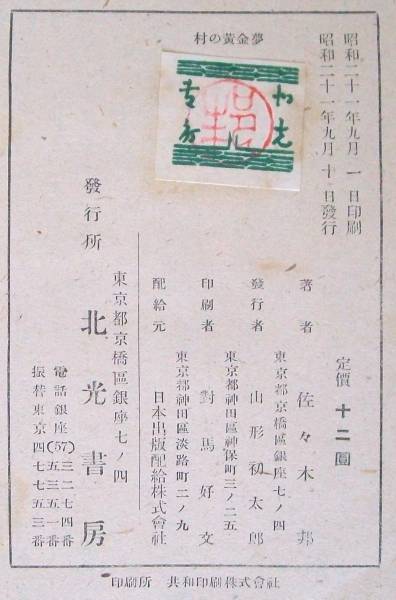 昭和二十一年九月 一 日印刷
昭和二十一年九月 十 日發行
村の黃金夢
北光
書房
定價 十二圓
著者 佐々木邦
東京都京橋區銀座七ノ四
發行者 山形初太郎
東京都神田區神保町三ノ二五
印刷者 對馬好文
東京都神田區淡路町二ノ九
配給元 日本出版配給株式會社
東京都京橋區銀座七ノ四
發行所 北光書房
電話銀座(57) 三二七四番
五三五一番
振替東京四七七五三番
印刷所 共和印刷株式會社